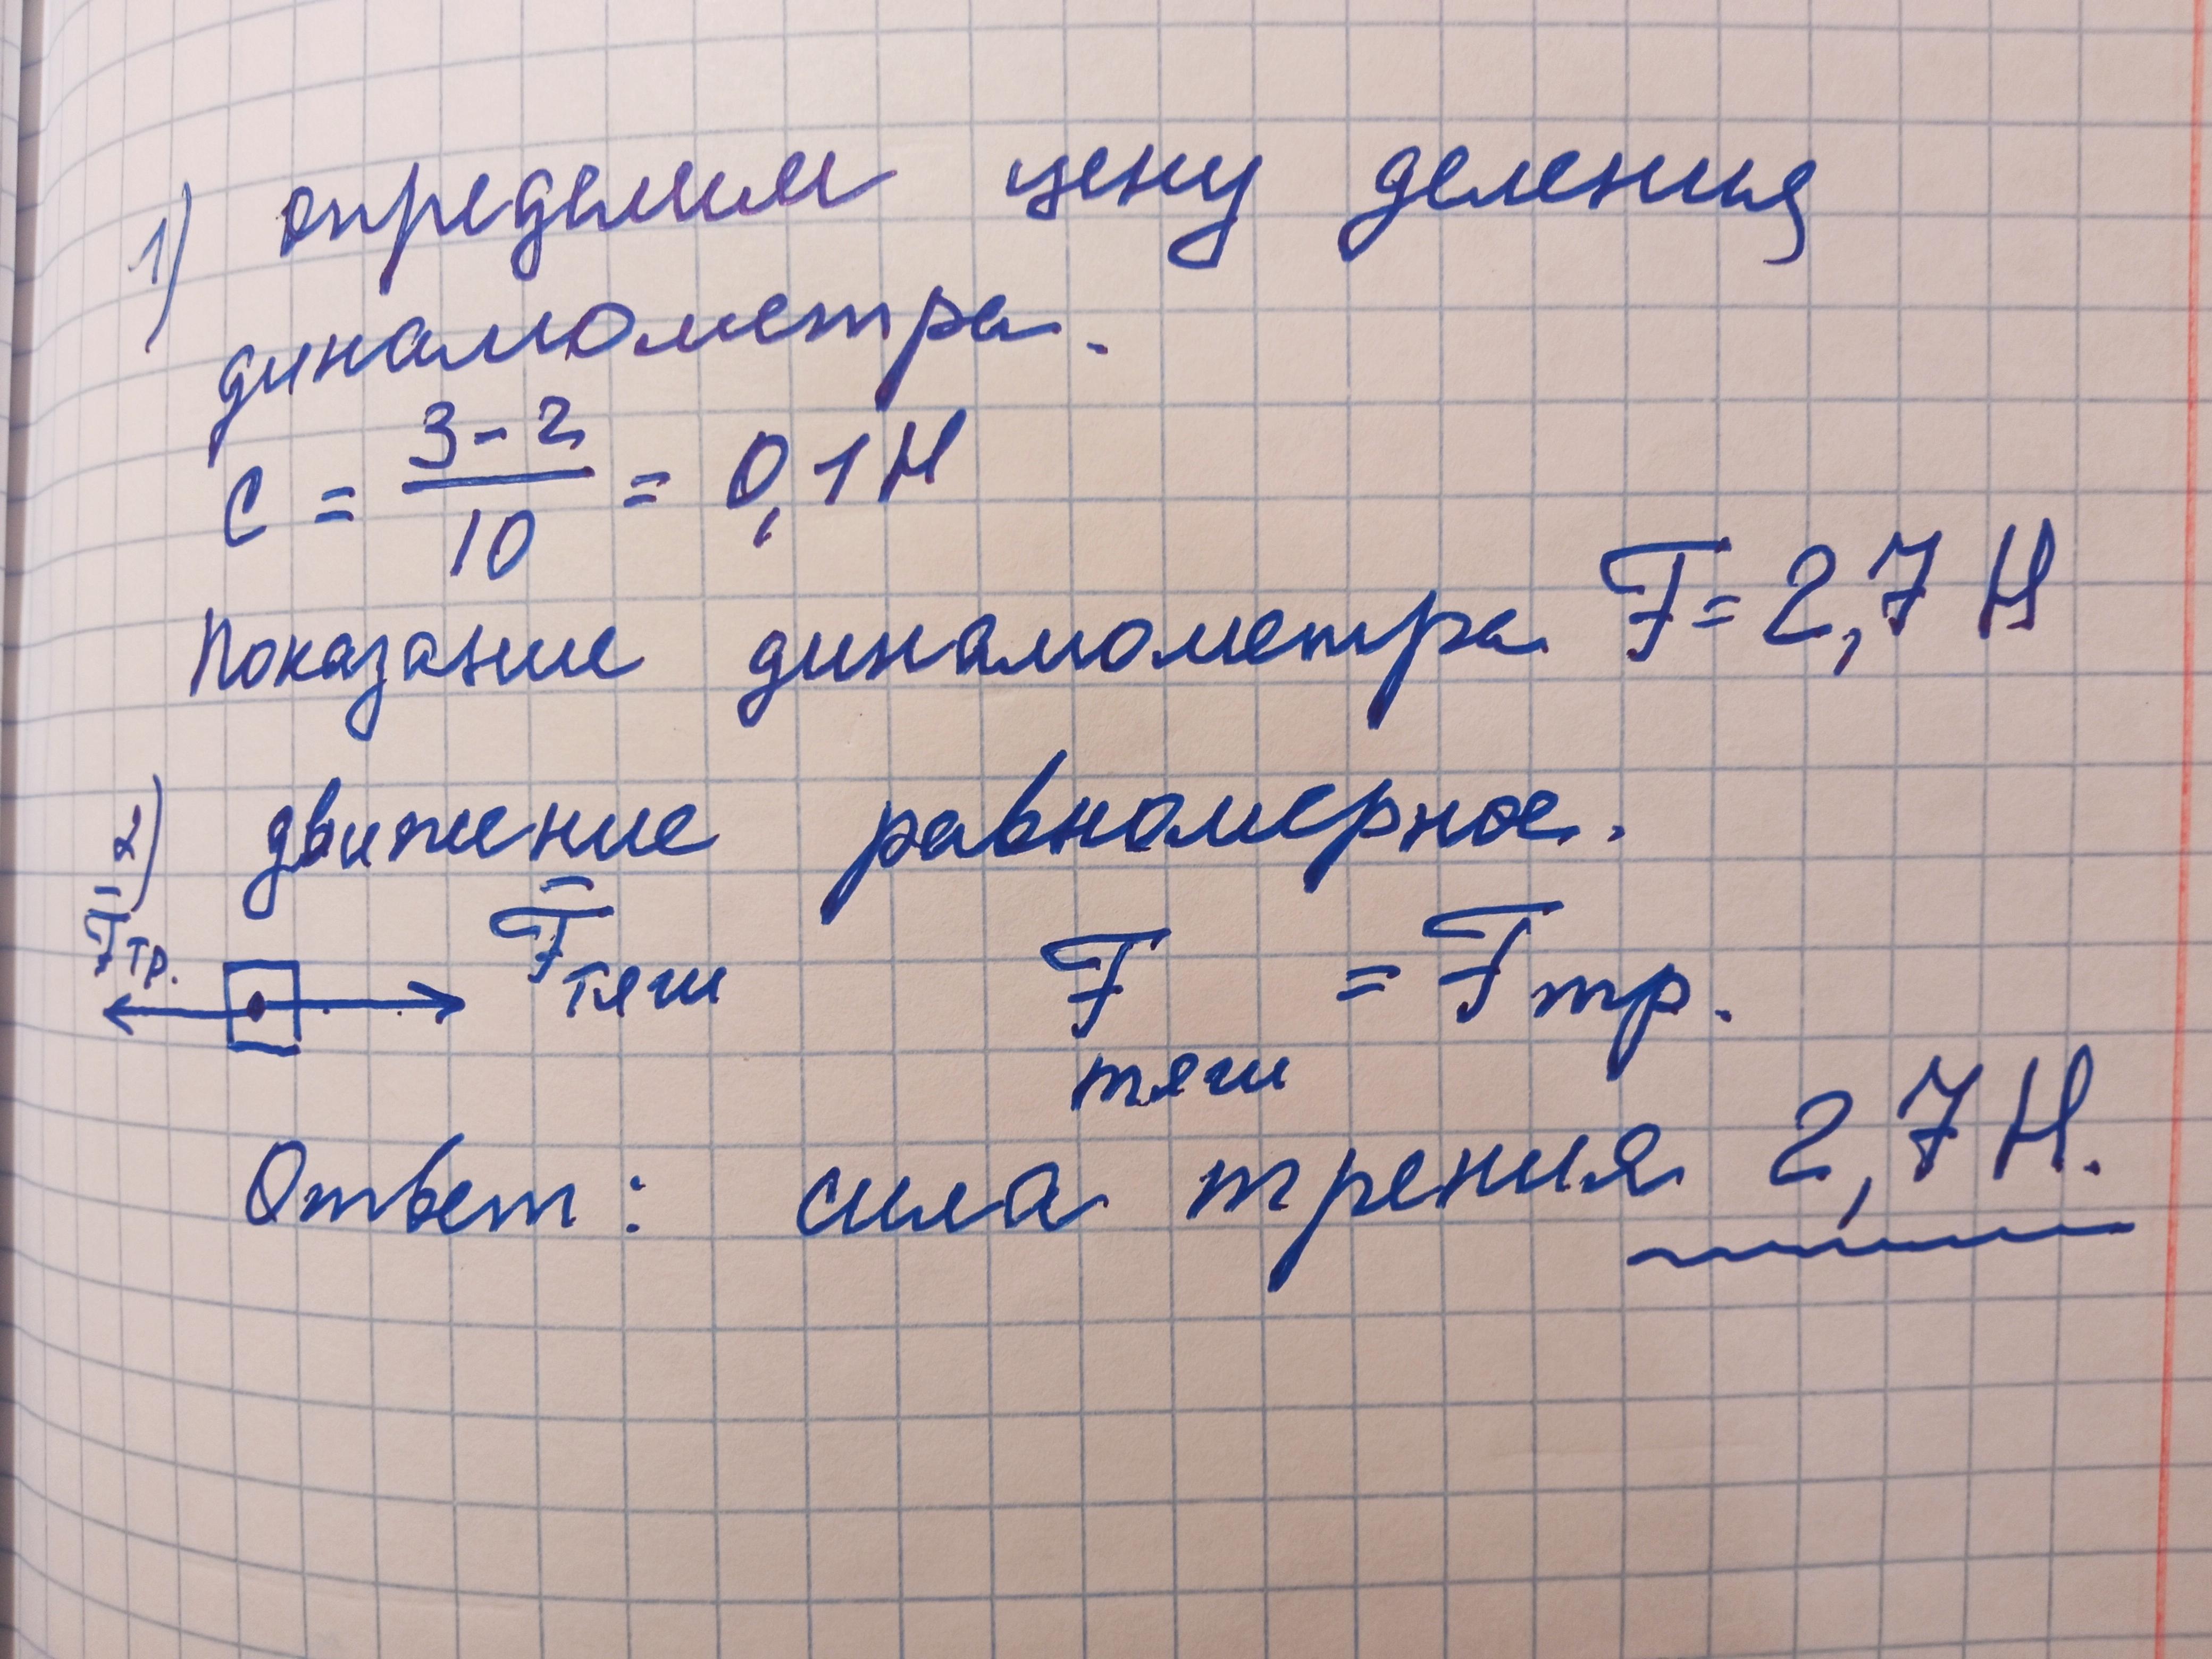 1) определим цену деления
динамометра.
C = 3-2/10 = 0,1 Н
Показание динамометра F = 2,7 Н
2) движение равномерное.
Fтр. Fтяги F тяги = Fтр.
Ответ: сила трения 2,7 Н.